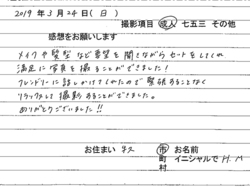 2019年3月24日(日)
撮影項目 成人 七五三 その他
感想をお願いします
メイクや髪型など要望を聞きながらセットをしてくれ
満足に写真を撮ることができました!
フレンドリーに話しかけてくれたので緊張することなく
リラックスして撮影することができました。
ありがとうございました!!
お住まい 市 お名前
町 イニシャルで H.M
村